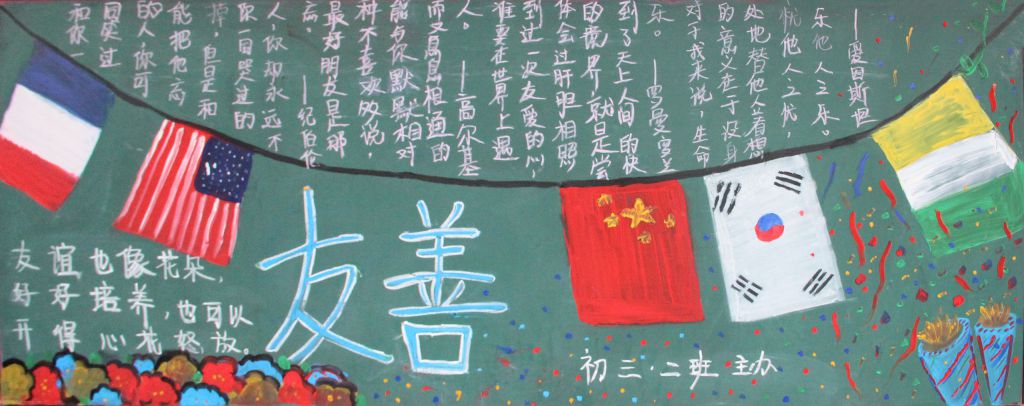 和你一
同笑过
的人，你可
能把他忘
掉，但是和
你一同哭过的
人，你却永远不
忘。——纪伯伦
最好朋友是那
种不喜欢多说，
能与你默默相对
而又息息相通的
人。——高尔基
谁要在世界上遇
到过一次友爱的心，
体会过肝胆相照
的境界，就是尝
到了天上人间的快
乐。——罗曼罗兰
对于我来说，生命
的意义在于设身
处地替他人着想
忧他人之忧，
乐他人之乐。
——爱因斯坦
友善
友谊也像花朵，
好好培养，也可以
开得心花怒放。
初三·二班 主办